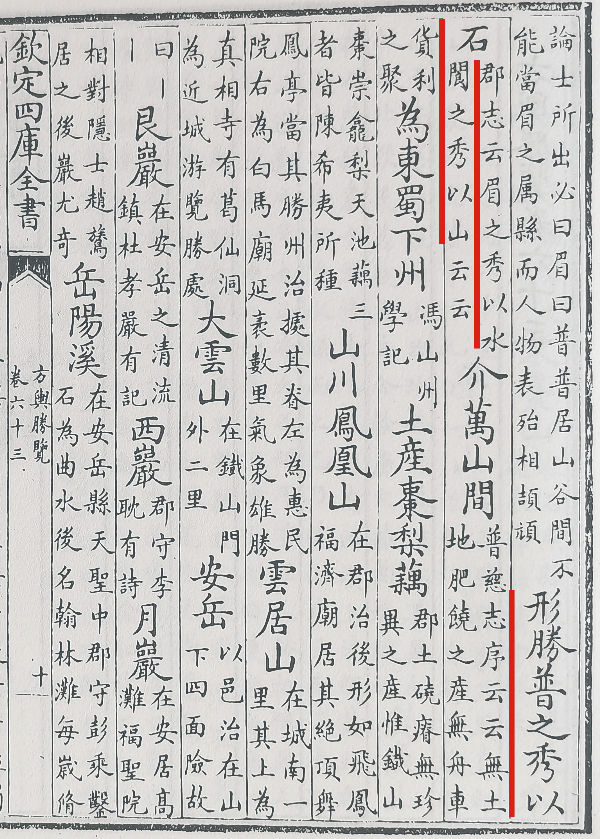 論士所出必曰眉曰普普居山谷間不能當眉之属縣而人物表殆相頡頏形勝普之秀以
石郡志云眉之秀以水閬之秀以山云云介萬山間普慈志序云云無土地肥饒之産無舟車
貨利之聚為東蜀下州馮山州學記土産棗梨藕郡土磽瘠無珍異之産惟鐵山
棗崇龕梨天池藕三者皆陳希夷所種山川鳳凰山在郡治後形如飛鳳福濟廟居其絶頂舞
鳳亭當其勝州治據其脊左為惠民院右為白馬廟延袤數里氣象雄勝雲居山在城南一里其上為
真相寺有葛仙洞為近城游覽勝處大雲山在鐵山門外二里安岳以邑治在山下四面險故
曰丨丨艮巖在安岳之清流鎮杜孝嚴有記西巖郡守李耽有詩月巖在安居髙灘福聖院
相對隱士趙居之後巖尤奇岳陽溪在安岳縣天聖中郡守彭乘鑿石為曲水後名翰林灘每嵗脩
欽定四庫全書
方輿勝覽
卷六十三
十